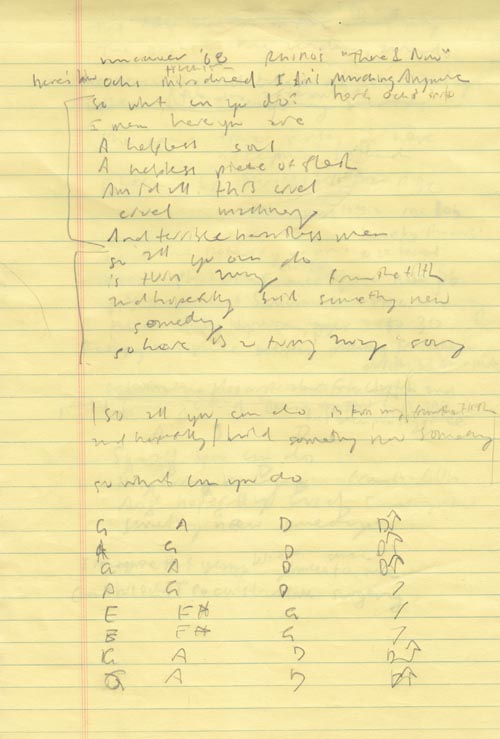 Vancouver '68 Rhino's "There & Now"
here's how Ochs introduced I Ain't Marching Anymore
here's Ochs' intro
So what can you do?
I mean here you are
A helpless soul
A helpless piece of flesh
Amid all this cruel
cruel machinery
And terrible heartless men
so all you can do
is turn away from the filth
and hopefully build something new
someday
so here is a turning away song
so all you can do is turn away from the filth
and hopefully build something new someday
so what can you do
G A D D↑
A G D D↑
G A D D↑
A G D /
E F# G /
E F# G /
G A D D↑
G A D D↑